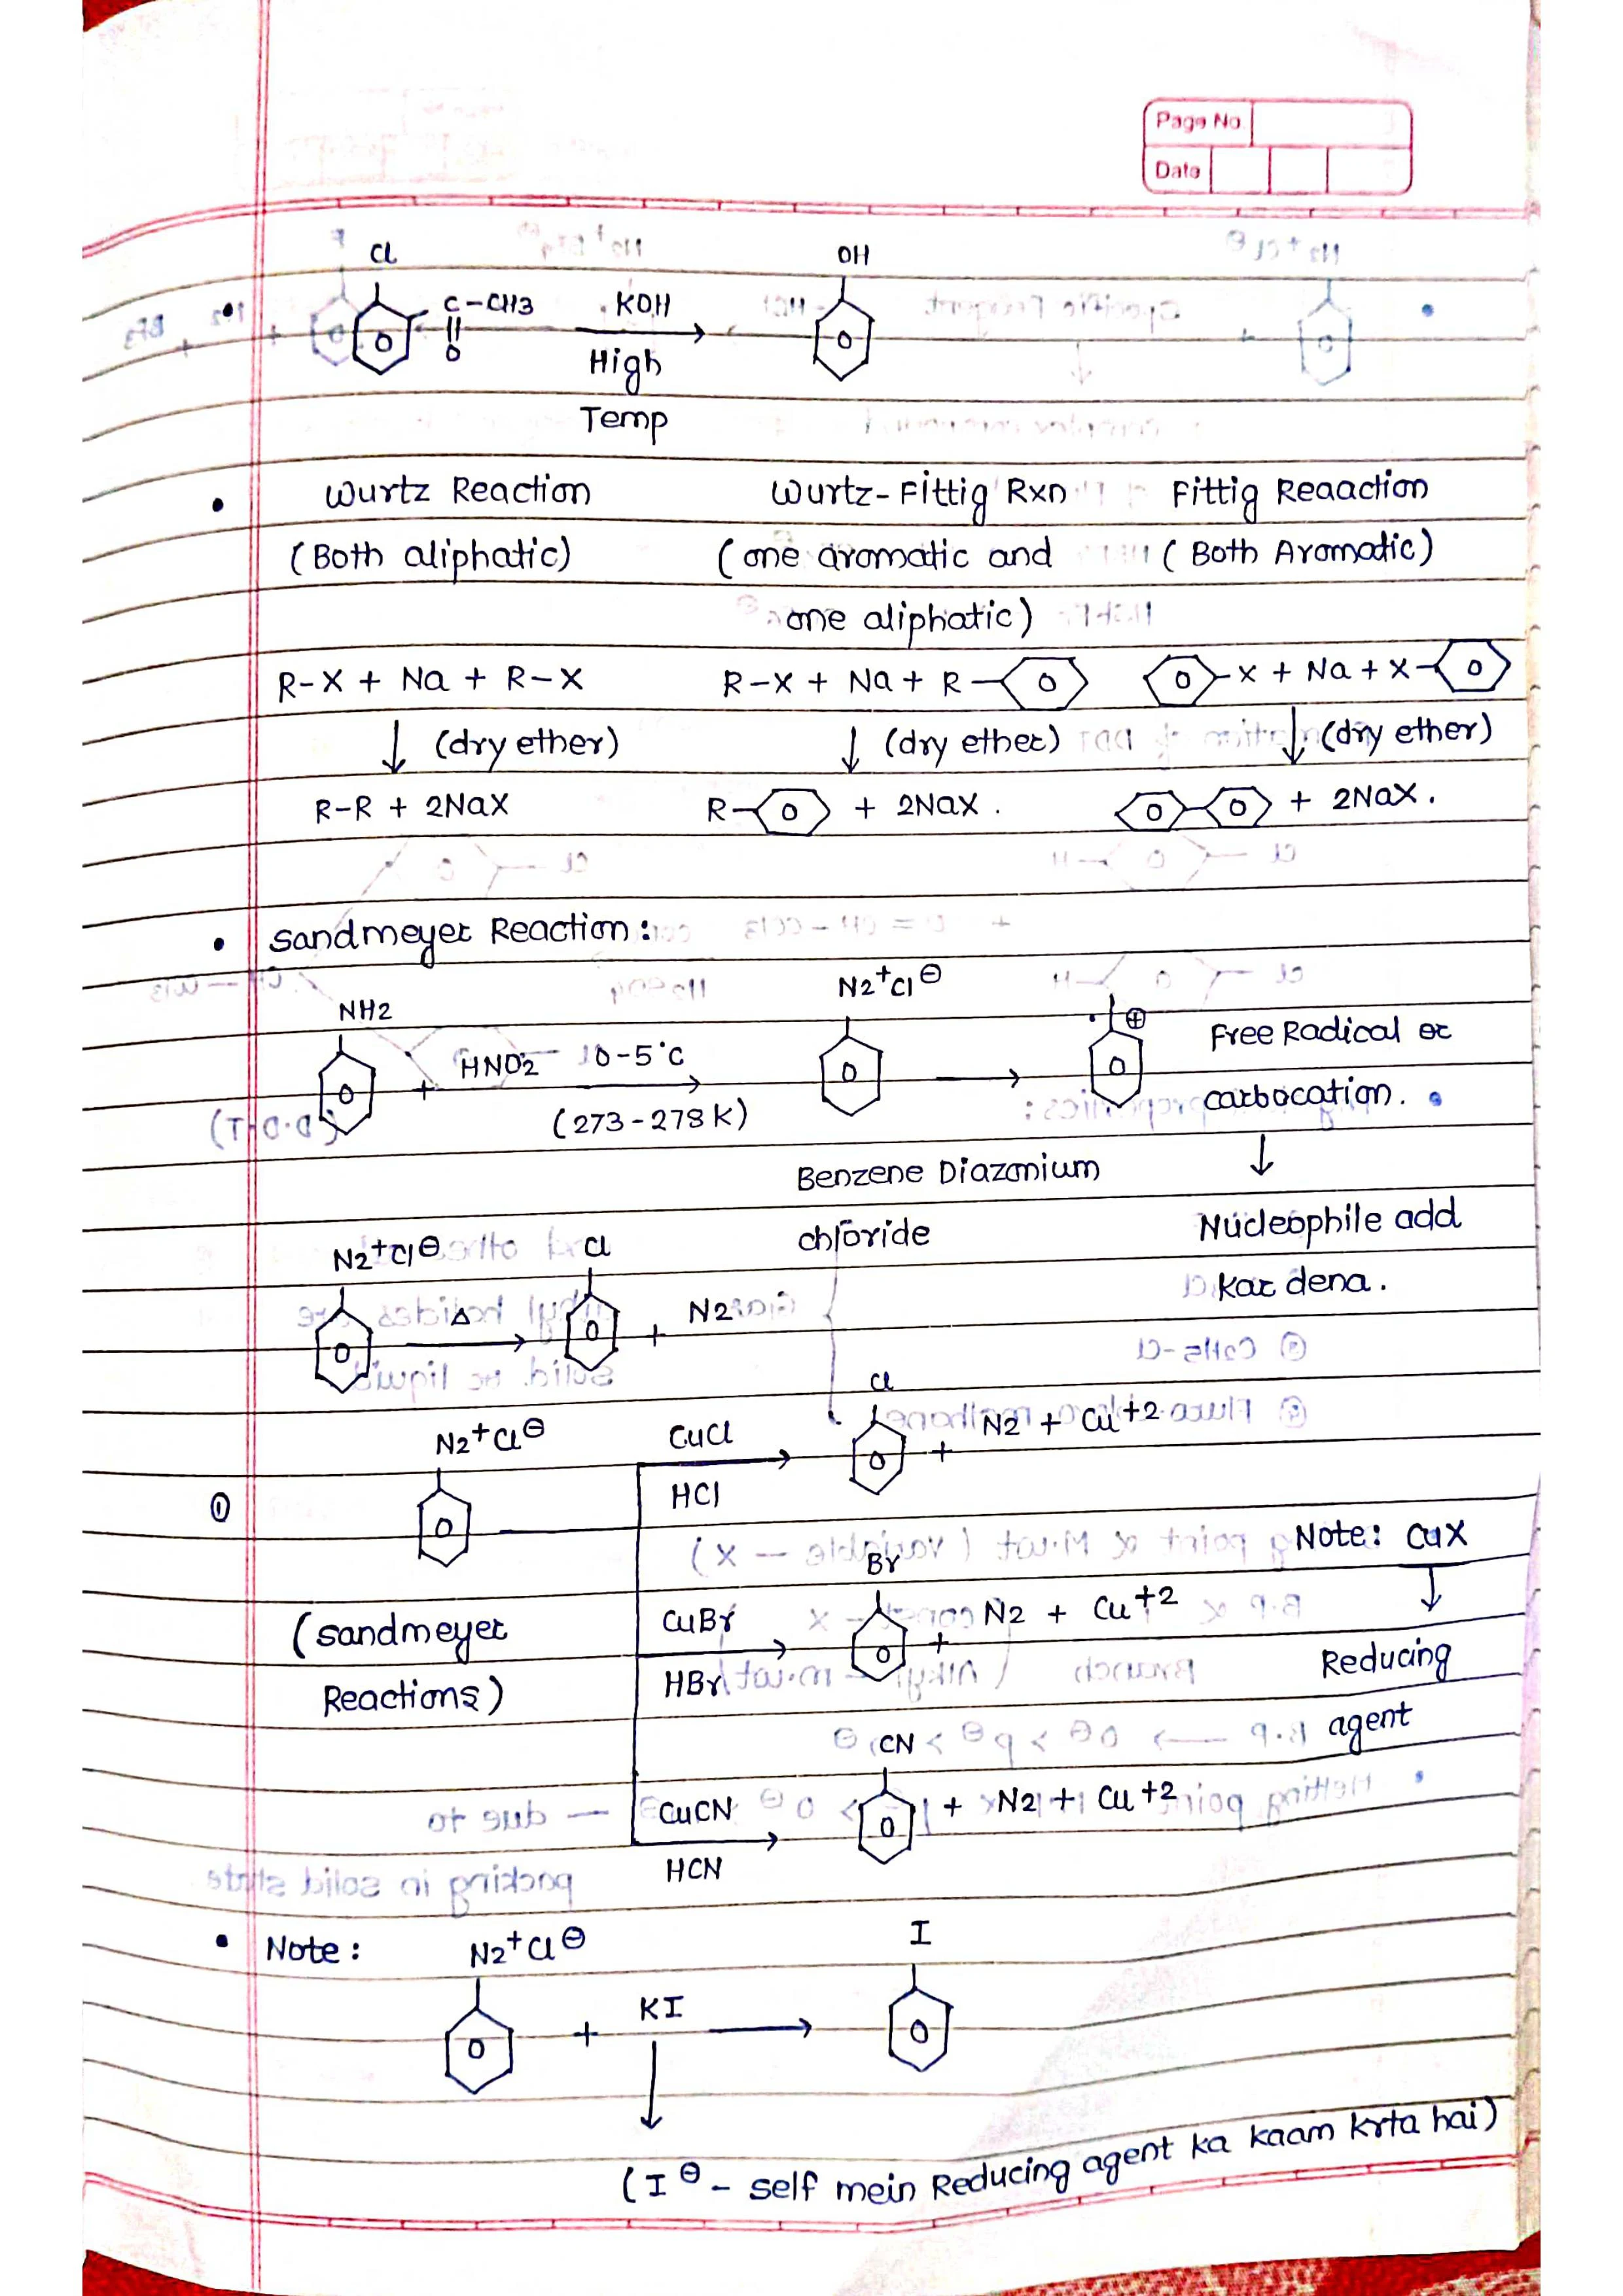 Page No.
Date
Cl OH
C-CH3 KOH
O O O
High
Temp
Wurtz Reaction Wurtz-Fittig Rxn Fittig Reaaction
(Both aliphatic) (one aromatic and (Both Aromatic)
one aliphatic)
R-X + Na + R-X R-X + Na + R-O O-X + Na + X-O
↓ (dry ether) ↓ (dry ether) ↓ (dry ether)
R-R + 2NaX R-O + 2NaX. O-O + 2NaX.
• Sandmeyer Reaction:
NH2 N2+Cl⊖ ⊕ Free Radical or
O + HNO2 0-5°C → O → O carbocation.
(273-278K)
Benzene Diazonium ↓
chloride Nucleophile add
kar dena.
N2+Cl⊖ Cl
O Δ → O + N2
N2+Cl⊖ CuCl Cl
① O HCl → O + N2 + Cu+2
Note: CuX
↓
Reducing
agent
(Sandmeyer CuBr Br
Reactions) HBr → O + N2 + Cu+2
CuCN CN
HCN → O + N2 + Cu+2
• Note: N2+Cl⊖ I
O + KI → O
↓
(I⊖ - self mein Reducing agent ka kaam krta hai)